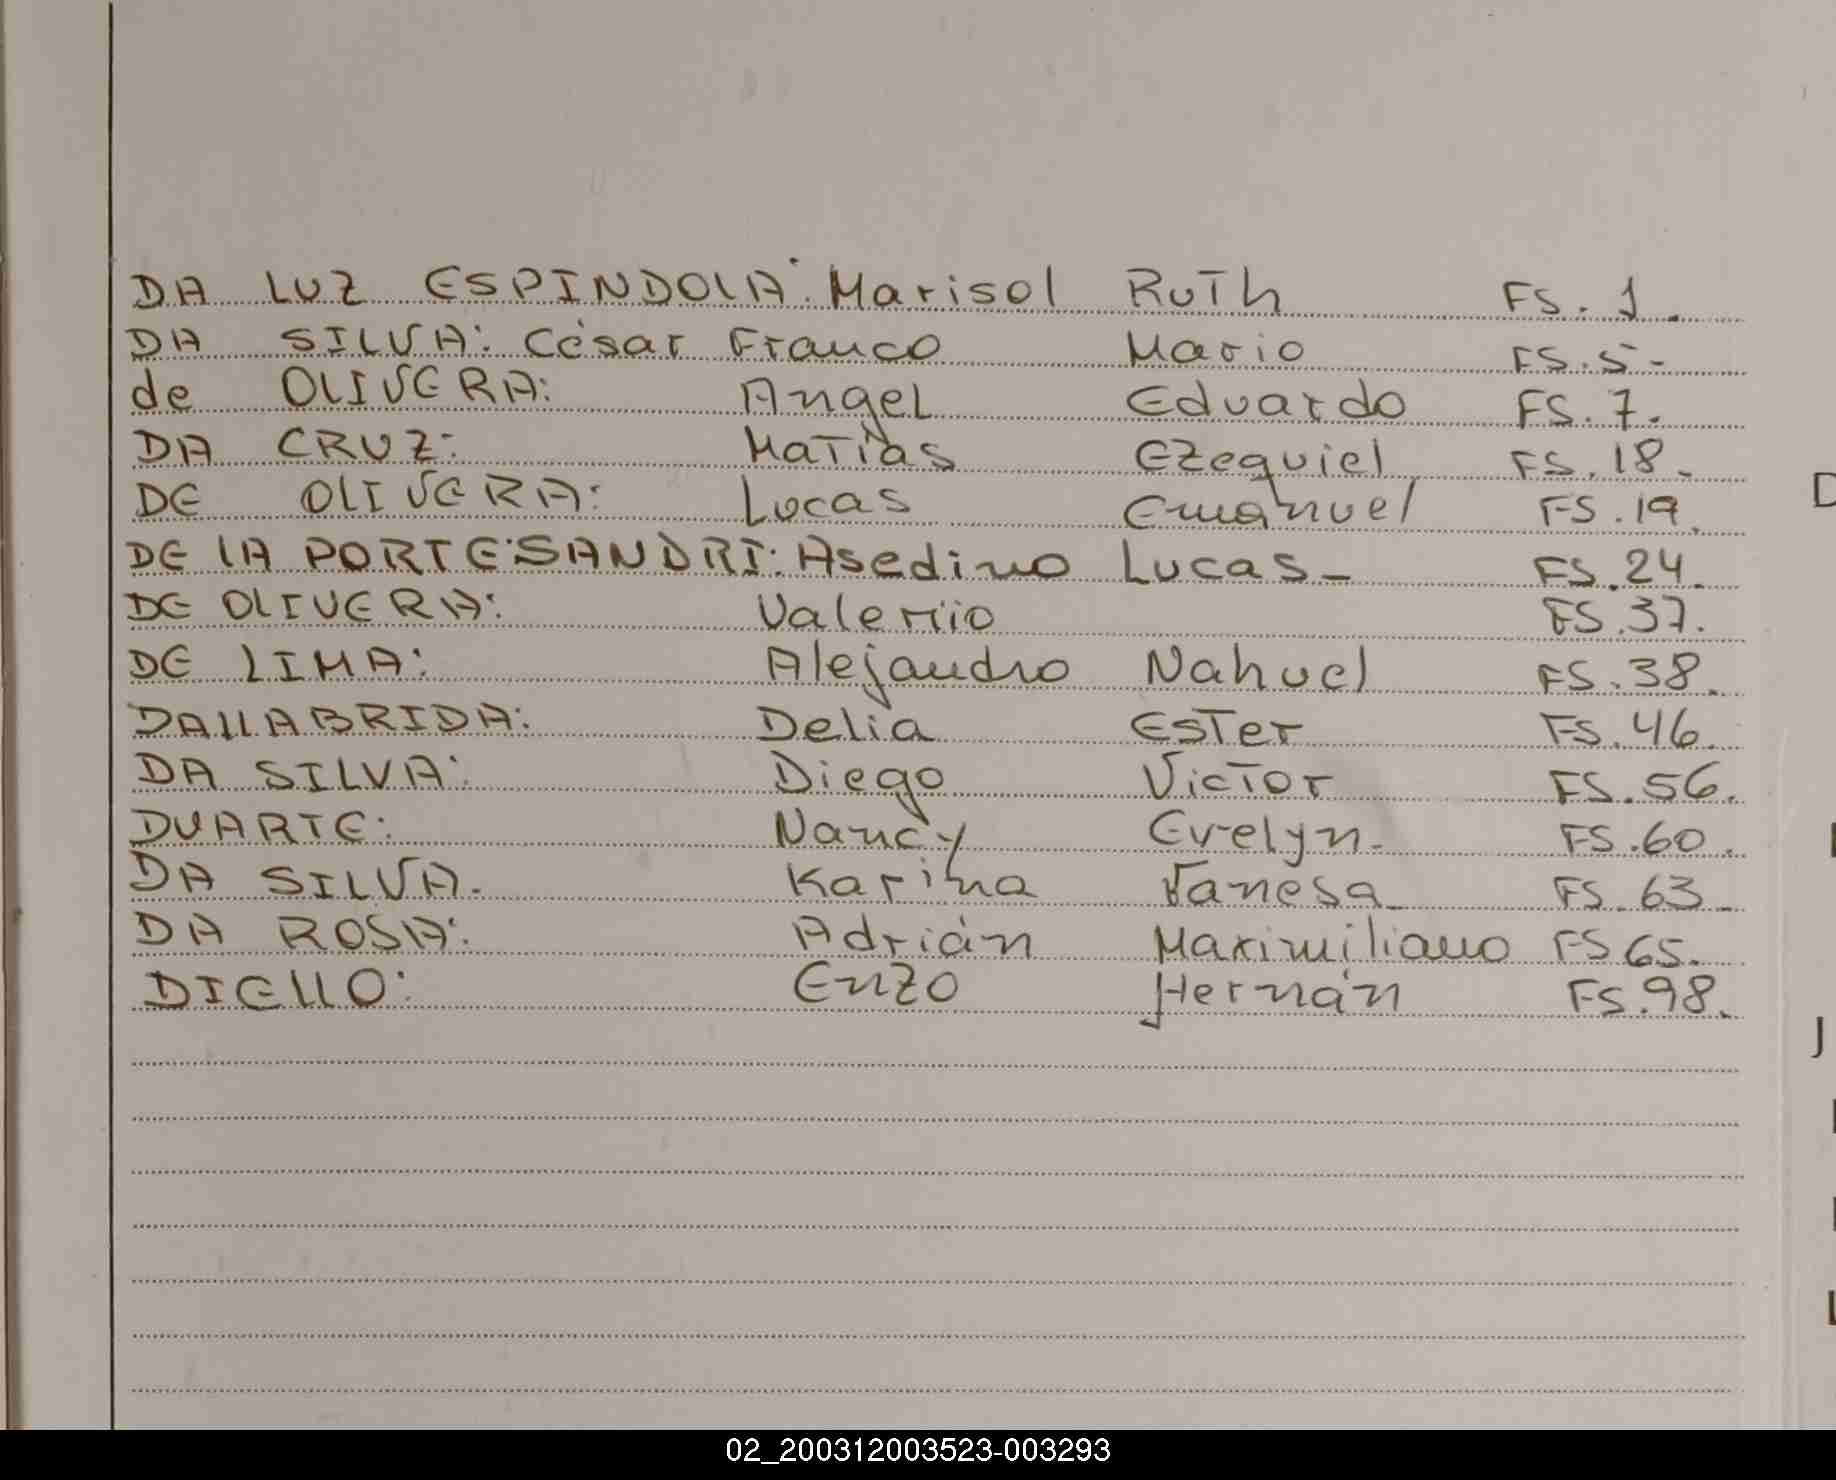 DA LUZ ESPINDOLA: Marisol Ruth FS. 1.
DA SILVA: César Franco Mario FS. 5-
de OLIVERA: Angel Eduardo FS. 7.
DA CRUZ: Matías Ezequiel FS. 18.
DE OLIVERA: Lucas Emanuel FS. 19.
DE LA PORTE SANDRI: Asedino Lucas- FS. 24.
DE OLIVERA: Valerio FS. 37.
DE LIMA: Alejandro Nahuel FS. 38.
DALLABRIDA: Delia Ester FS. 46.
DA SILVA: Diego Victor FS. 56.
DUARTE: Nancy Evelyn- FS. 60.
DA SILVA. Karina Vanesa- FS. 63-
DA ROSA: Adrián Maximiliano FS 65.
DIELLO: Enzo Hernán FS. 98.
D
J
L
02_200312003523-003293